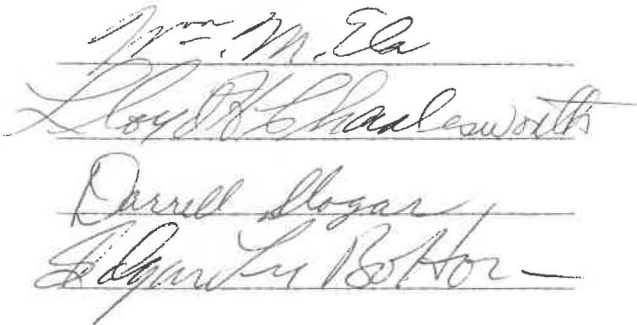 Wm. M. Ela
Lloyd H Charlesworth
Darrell Slogar
Edgar Lee Bottor